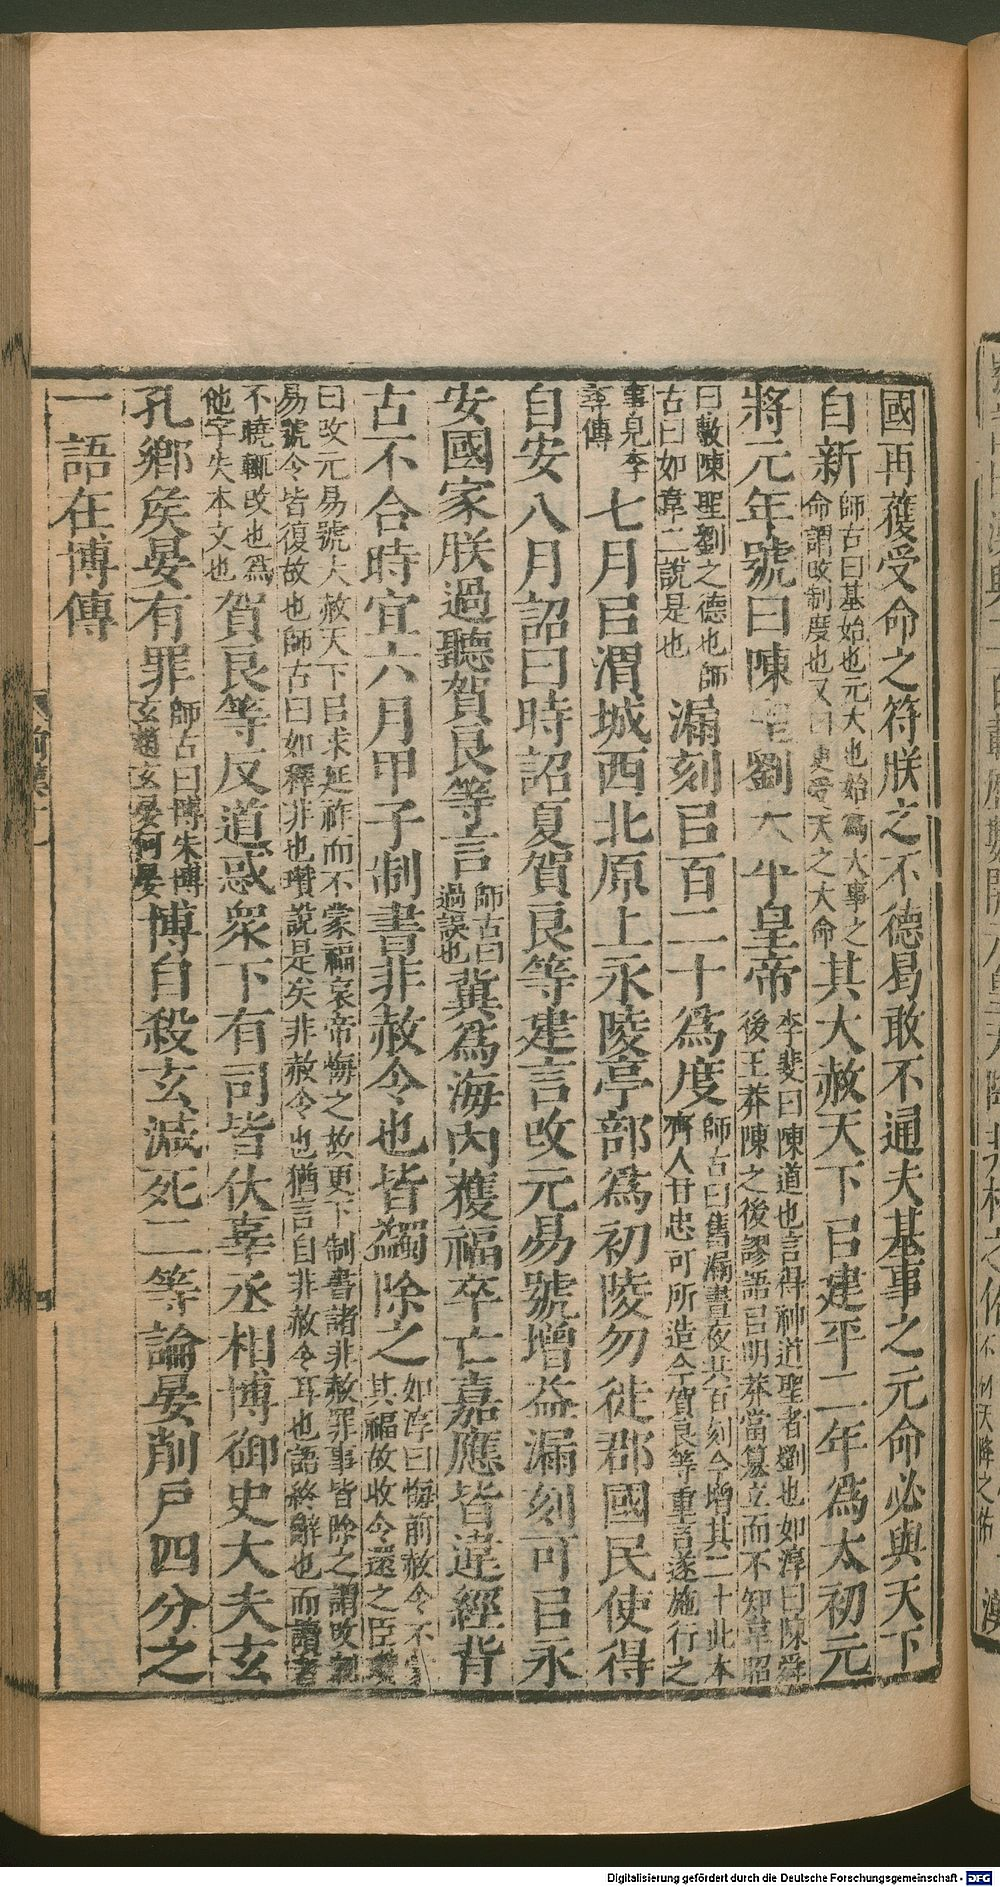 國再獲受命之符朕之不德曷敢不通夫基事之元命必與天下
自新師古曰基始也元大也始爲大事之命謂改制度也又曰更受天之大命其大赦天下㠯建平二年爲太初元
將元年號曰陳聖劉太平皇帝李斐曰陳道也言得神道聖者劉也如淳曰陳舜後王莽陳之後謬語㠯明莽當篡立而不知韋昭
曰敷陳聖劉之德也師古曰如韋二說是也漏刻㠯百二十爲度師古曰舊漏晝夜共百刻今增其二十此本齊人甘忠可所造今賀良等重言遂施行之
事見李尋傳七月㠯渭城西北原上永陵亭部爲初陵勿徙郡國民使得
自安八月詔曰時詔夏賀良等建言改元易號增益漏刻可㠯永
安國家朕過聽賀良等言師古曰過誤也冀爲海內獲福卒亡嘉應皆違經背
古不合時宜六月甲子制書非赦令也皆蠲除之如淳曰悔前赦令不蒙其福故收令還之臣瓚
曰改元易號大赦天下㠯求延祚而不蒙福哀帝悔之故更下制書諸非赦罪事皆除之謂改制易號令皆復故也師古曰如釋非也瓚說是矣非赦令也猶言自非赦令耳也語終辭也而讀者
不曉輒改也爲他字失本文也賀良等反道惑衆下有司皆伏辜丞相博御史大夫玄
孔鄉矦晏有罪師古曰博朱博玄趙玄晏何晏博自殺玄減死二等論晏削戶四分之
一語在博傳
Digitalisierung gefördert durch die Deutsche Forschungsgemeinschaft - DFG